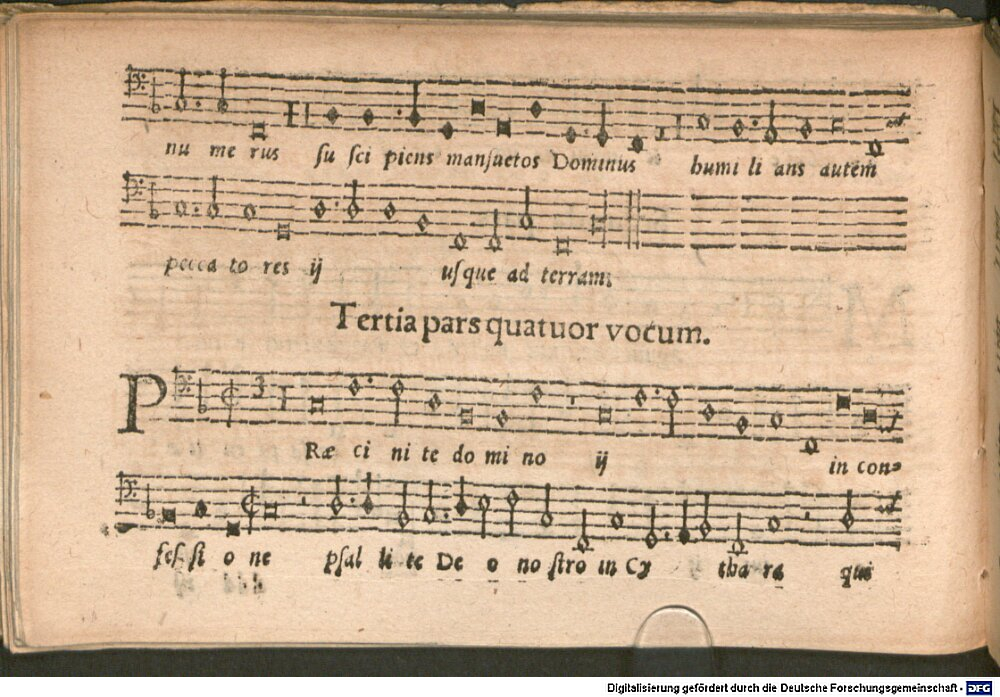 nu me rus ſu ſci piens manſuetos Dominus humi li ans autem
pecca to res ij uſque ad terram:
Tertia pars quatuor vocum.
PRæ ci ni te do mi no ij in con-
feſ ſi o ne pſal li te De o no ſtro in Cy tha ra qui
Digitalisierung gefördert durch die Deutsche Forschungsgemeinschaft - DFG